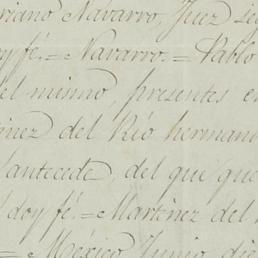 riano Navarro, Juez
oy fé.= Navarro.= Pablo
el mismo, presentes en
inez del Rio herman
antecede, del que que
doy fé.= Martinez del
= México Junio die